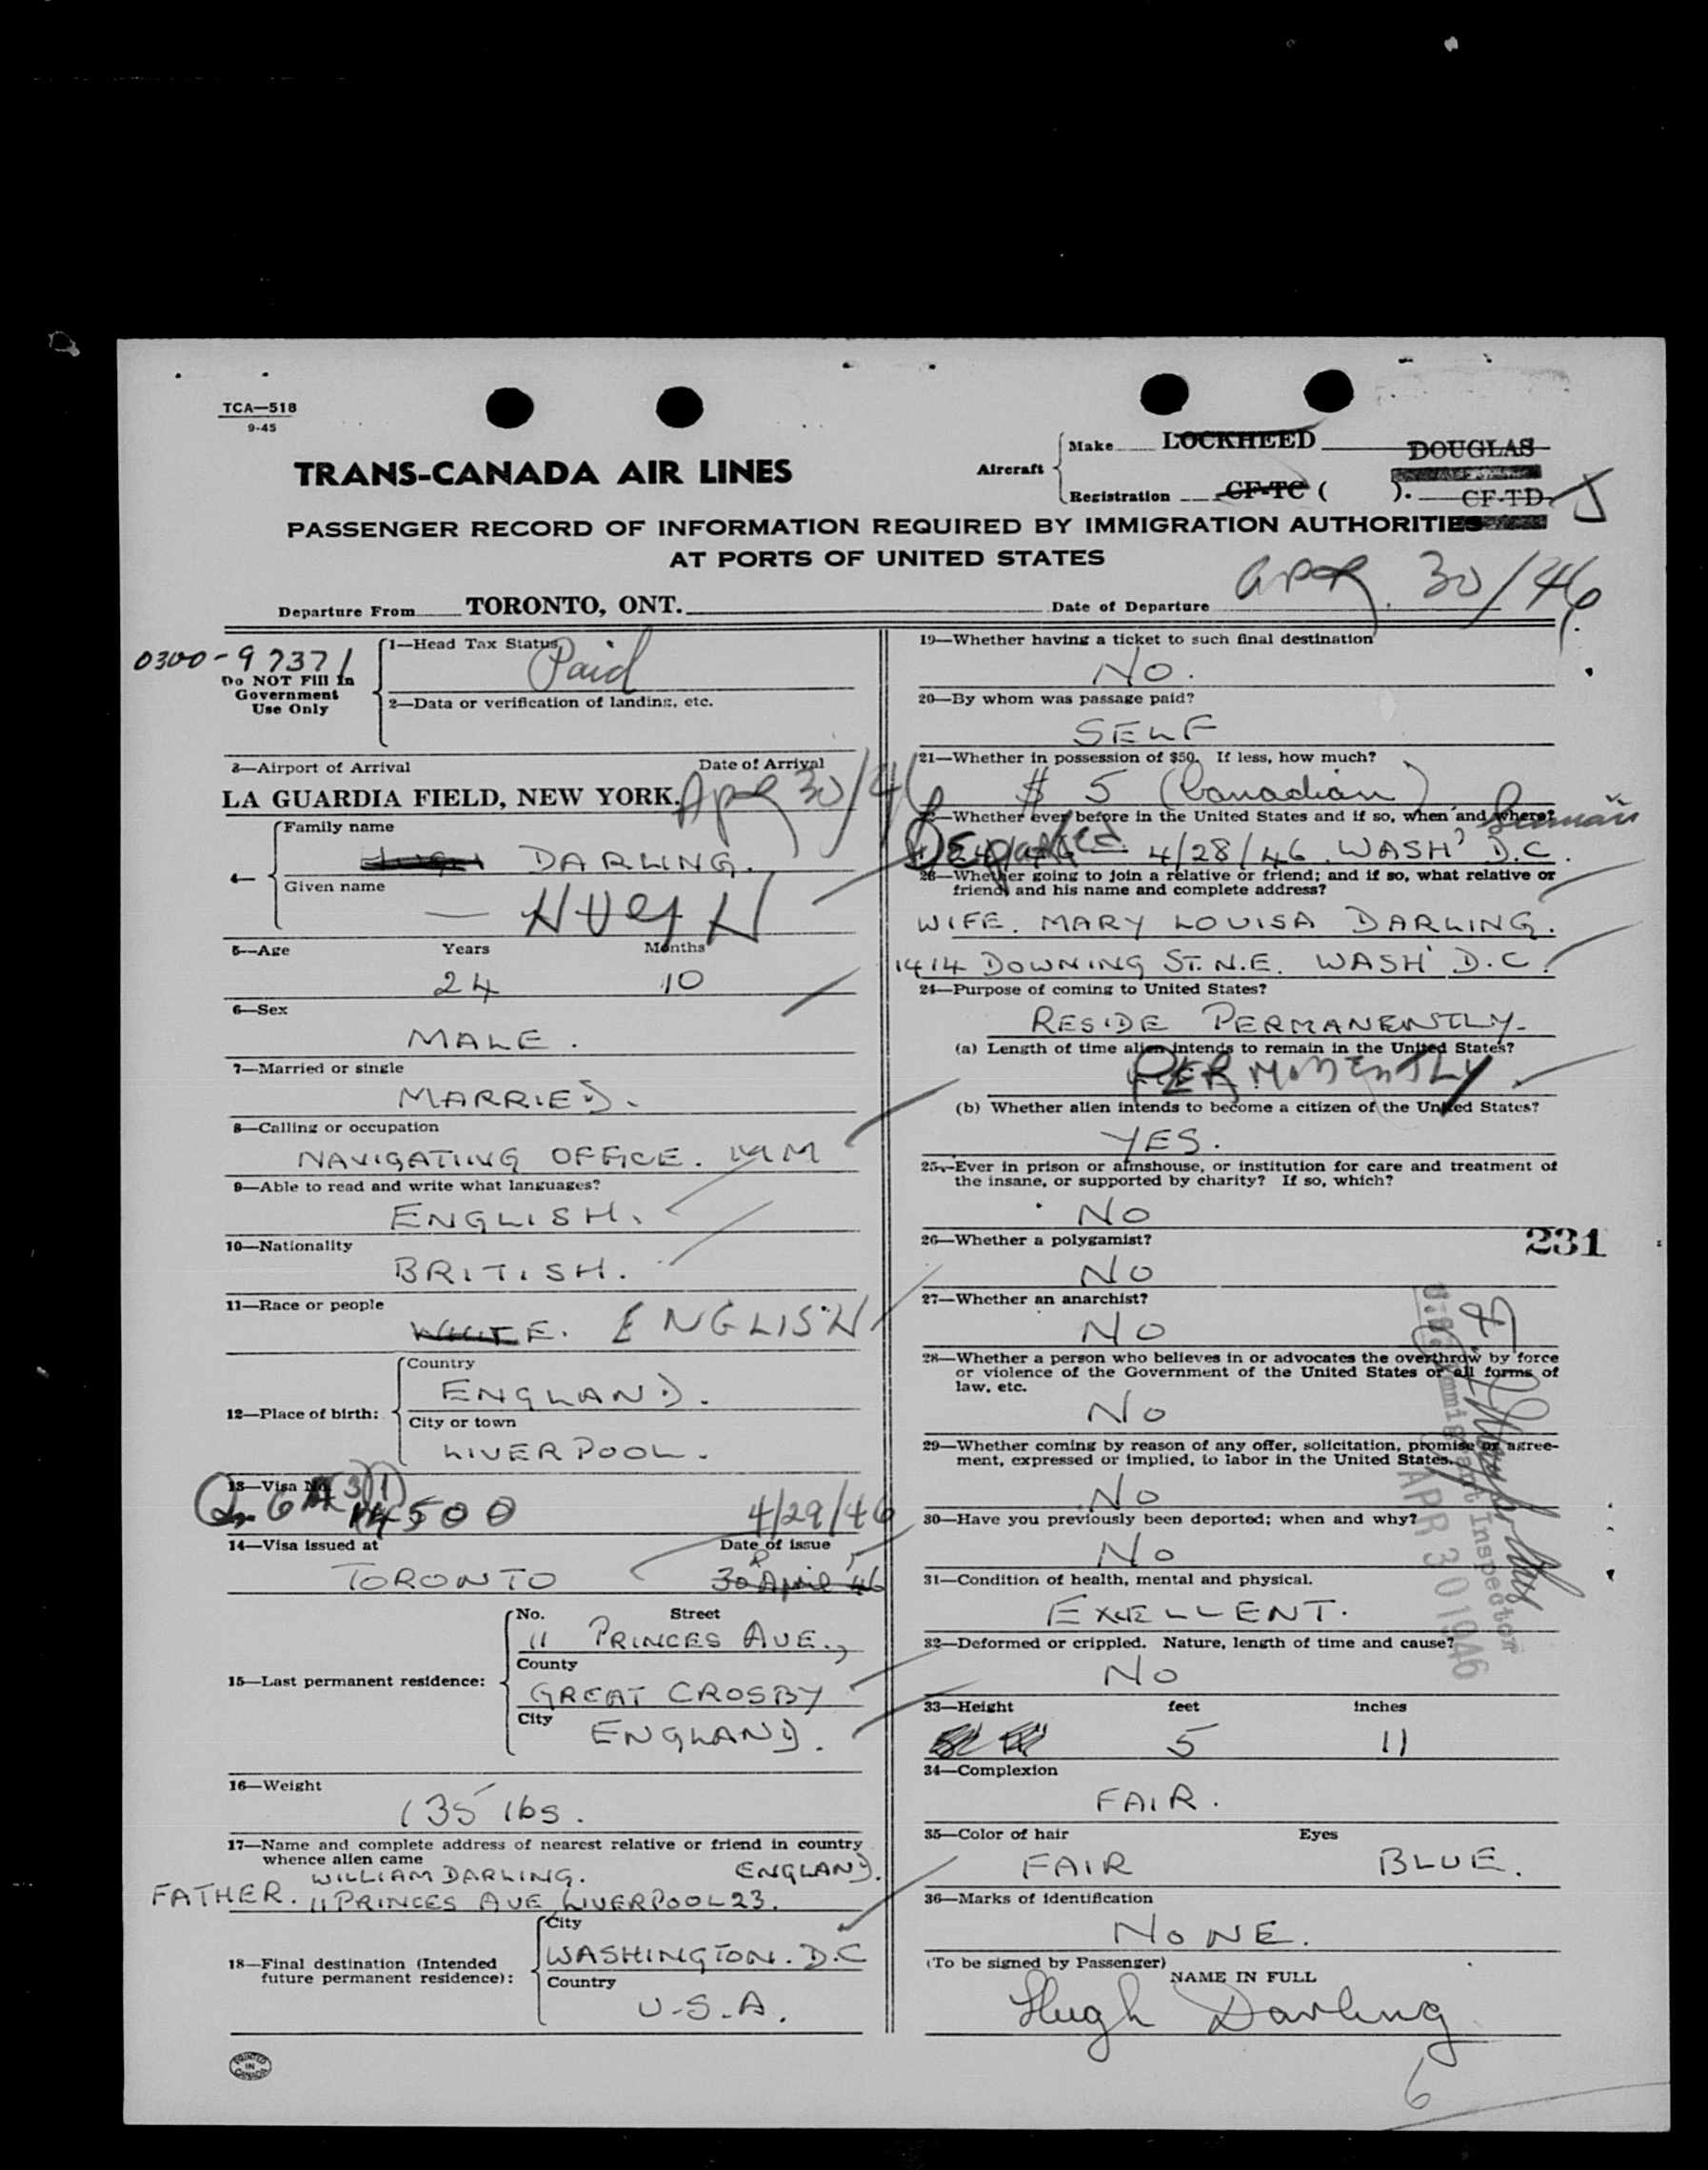 TCA—518
9-45
TRANS-CANADA AIR LINES
Aircraft
Make LOCKHEED DOUGLAS
Registration CF-TC ( ). CF-TD J
PASSENGER RECORD OF INFORMATION REQUIRED BY IMMIGRATION AUTHORITIES
AT PORTS OF UNITED STATES
Departure From TORONTO, ONT. Date of Departure APR. 30/46
0300-97371
Do NOT Fill In
Government
Use Only
1—Head Tax Status
Paid
2—Data or verification of landing, etc.
3—Airport of Arrival Date of Arrival
LA GUARDIA FIELD, NEW YORK. Apr 30/46
4—
Family name
DARLING.
Given name
— HUGH
5—Age Years Months
24 10
6—Sex
MALE.
7—Married or single
MARRIED.
8—Calling or occupation
NAVIGATIING OFFICE. MM
9—Able to read and write what languages?
ENGLISH.
10—Nationality
BRITISH.
11—Race or people
WHITE. ENGLISH
12—Place of birth:
Country
ENGLAND.
City or town
LIVERPOOL.
13—Visa No.
14500 4/29/46
14—Visa issued at Date of issue
TORONTO 30 April 46
15—Last permanent residence:
No. Street
11 PRINCES AVE.,
County
GREAT CROSBY
City
ENGLAND.
16—Weight
135 lbs.
17—Name and complete address of nearest relative or friend in country
whence alien came
WILLIAM DARLING. ENGLAND.
FATHER. 11 PRINCES AVE LIVERPOOL 23.
18—Final destination (Intended
future permanent residence):
City
WASHINGTON. D.C
Country
U.S.A.
PRINTED
IN
CANADA
19—Whether having a ticket to such final destination
No.
20—By whom was passage paid?
SELF
21—Whether in possession of $50. If less, how much?
$ 5 (Canadian)
22—Whether ever before in the United States and if so, when and where?
Departed 4/28/46. WASH' D.C.
23—Whether going to join a relative or friend; and if so, what relative or
friend, and his name and complete address?
WIFE. MARY LOUISA DARLING.
1414 DOWNING ST. N.E. WASH' D.C.
24—Purpose of coming to United States?
RESIDE PERMANENTLY.
(a) Length of time alien intends to remain in the United States?
PERMANENTLY
(b) Whether alien intends to become a citizen of the United States?
YES.
25—Ever in prison or almshouse, or institution for care and treatment of
the insane, or supported by charity? If so, which?
No
231
26—Whether a polygamist?
No
27—Whether an anarchist?
No
28—Whether a person who believes in or advocates the overthrow by force
or violence of the Government of the United States or all forms of
law, etc.
No
29—Whether coming by reason of any offer, solicitation, promise or agree-
ment, expressed or implied, to labor in the United States.
No
U.S. Immigrant Inspector
APR 30 1946
30—Have you previously been deported; when and why?
No
31—Condition of health, mental and physical.
EXELLENT.
32—Deformed or crippled. Nature, length of time and cause?
No
33—Height feet inches
5 11
34—Complexion
FAIR.
35—Color of hair Eyes
FAIR BLUE.
36—Marks of identification
NONE.
(To be signed by Passenger)
NAME IN FULL
Hugh Darling
6